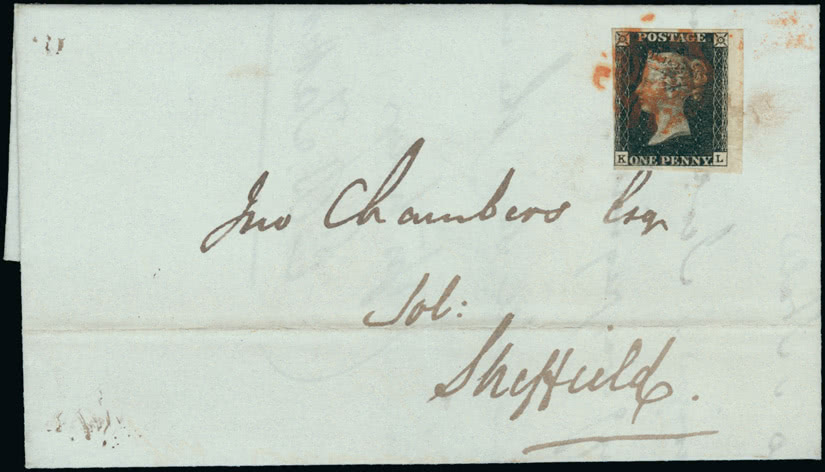 POSTAGE
K ONE PENNY L
Jno Chambers Esqr
Sol:
Sheffield.